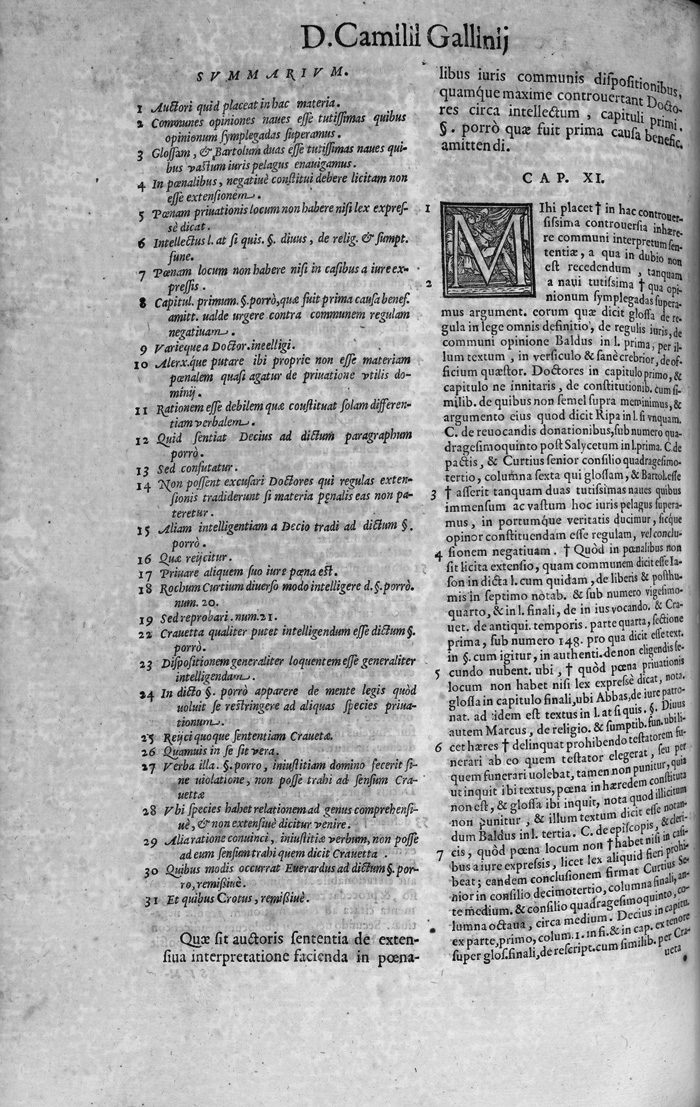 D. Camilli Gallinij
SVMMARIVM.
1 Auctori quid placeat in hac materia.
2 Communes opiniones naues esse tutissimas quibus
opinionum symplegadas superamus.
3 Glossam, & Bartolum duas esse tutissimas naues qui-
bus vastum iuris pelagus enauigamus.
4 In pœnalibus, negatiuè constitui debere licitam non
esse extensionem.
5 Pœnam priuationis locum non habere nisi lex expres-
sè dicat.
6 Intellectus l. at si quis. §. diuus, de relig. & sumpt.
fune.
7 Pœnam locum non habere nisi in casibus a iure ex-
pressis.
8 Capitul. primum. §. porrò, quæ fuit prima causa benef.
amitt. ualde urgere contra communem regulam
negatiuam.
9 Varieque a Doctor. intelligi.
10 Alex. que putare ibi proprie non esse materiam
pœnalem quasi agatur de priuatione vtilis do-
minij.
11 Rationem esse debilem quæ coustituat solam differen-
tiam verbalem.
12 Quid sentiat Decius ad dictum paragraphum
porrò.
13 Sed confutatur.
14 Non possent excusari Doctores qui regulas exten-
sionis tradiderunt si materia pęnalis eas non pa-
teretur.
15 Aliam intelligentiam a Decio tradi ad dictum §.
porrò.
16 Quæ reijcitur.
17 Priuare aliquem suo iure pœna est.
18 Rochum Curtium diuerso modo intelligere d. §. porrò.
num. 20.
19 Sed reprobari. num. 21.
22 Crauetta qualiter putet intelligendum esse dictum §.
porrò.
23 Dispositionem generaliter loquentem esse generaliter
intelligendam.
24 In dicto §. porrò apparere de mente legis quòd
uoluit se restringere ad aliquas species priua-
tionum.
25 Reijci quoque sententiam Crauetæ.
26 Quamuis in se sit vera.
27 Verba illa. §. porro, iniustitiam domino fecerit si-
ne uiolatione, non posse trahi ad sensum Cra-
uettæ
28 Vbi species habet relationem ad genus comprehensi-
uè, & non extensiuè dicitur venire.
29 Alia ratione conuinci, iniustitiæ verbum, non posse
ad eum sensum trahi quem dicit Crauetta.
30 Quibus modis occurrat Euerardus ad dictum §. por-
ro, remissiuè.
31 Et quibus Crotus, remissiuè.
Quæ sit auctoris sententia de exten-
siua interpretatione facienda in pœna-
libus iuris communis dispositionibus,
quamque maxime controuertant Docto-
res circa intellectum, capituli primi.
§. porrò quæ fuit prima causa benefic.
amittendi.
CAP. XI.
1 MIhi placet † in hac controuer-
sissima controuersia inhære-
re communi interpretum sen-
tentiæ, a qua in dubio non
est recedendum, tanquam
2 a naui tutissima † qua opi-
nionum symplegadas supera-
mus argument. eorum quæ dicit glossa de re-
gula in lege omnis definitio, de regulis iuris, de
communi opinione Baldus in l. prima, per il-
lum textum, in versiculo & sanè crebrior, de of-
ficium quæstor. Doctores in capitulo primo, &
capitulo ne innitaris, de constitutionib. cum si-
milib. de quibus non semel supra meminimus, &
argumento eius quod dicit Ripa in l. si vnquam.
C. de reuocandis donationibus, sub numero qua-
dragesimoquinto post Salycetum in l. prima. C. de
pactis, & Curtius senior consilio quadragesimo-
tertio, columna sexta qui glossam, & Bartol. esse
3 † asserit tanquam duas tutissimas naues quibus
immensum ac vastum hoc iuris pelagus supera-
mus, in portumque veritatis ducimur, sicque
opinor constituendam esse regulam, vel conclu-
4 sionem negatiuam. † Quòd in pœnalibus non
sit licita extensio, quam communem dicit esse Ia-
son in dicta l. cum quidam, de liberis & posthu-
mis in septimo notab. & sub numero vigesimo-
quarto, & in l. finali, de in ius vocando. & Cra-
uet. de antiqui. temporis. parte quarta, sectione
prima, sub numero 149. pro qua dicit esse text.
in §. cum igitur, in authenti. de non eligendis se-
5 cundo nubent. ubi, † quòd pœna priuationis
locum non habet nisi lex expressè dicat, nota.
glossa in capitulo finali, ubi Abbas, de iure patro-
nat. ad idem est textus in l. at si quis. §. Diuus
autem Marcus, de religio. & sumptib. fun. ubi li-
6 cet hæres † delinquat prohibendo testatorem fu-
nerari ab eo quem testator elegerat, seu per
quem funerari uolebat, tamen non punitur, quia
ut inquit ibi textus, pœna in hæredem constituta
non est, & glossa ibi inquit, nota quod illicitum
non punitur, & illum textum dicit esse notan-
dum Baldus in l. tertia. C. de episcopis, & cleri-
7 cis, quòd pœna locum non † habet nisi in casi-
bus a iure expressis, licet lex aliquid fieri prohi-
beat; eandem conclusionem firmat Curtius Se-
nior in consilio decimotertio, columna finali, an-
te medium. & consilio quadragesimoquinto, co-
lumna octaua, circa medium. Decius in capitu.
ex parte, primo, colum. 1. in fi. & in cap. ex tenore
super glos. finali, de rescript. cum similib. per Cra-
ueta